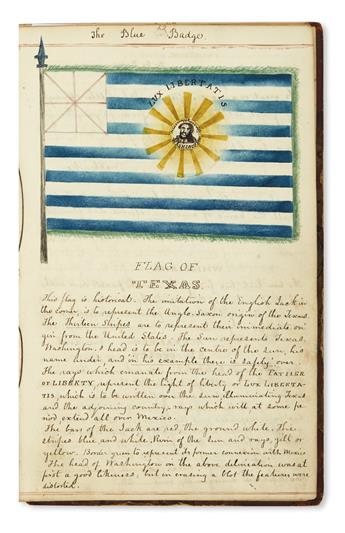 The Blue Badge.
LUX LIBERTATIS
FLAG OF
TEXAS.
This flag is historical. The imitation of the English Jack in
the corner, is to represent the Anglo-Saxon origin of the Texans.
The Thirteen Stripes are to represent their immediate ori
gin from the United States. The Sun represents Texas.
Washington's head is to be in the centre of the sun, his
name under and "in his example there is safety" over.
The rays which emanate from the head of the FATHER
OF LIBERTY, represent the light of liberty or LUX LIBERTA-
TIS, which is to be written over the sun, illuminating Texas
and the adjoining country, rays which will at some pe
riod extend all over Mexico.
The bars of the Jack are red, the ground white. The
stripes blue and white. Rim of the sun and rays, gilt or
yellow. Border green to represent its former connexion with Mexico
The head of Washington on the above delineation was at
first a good likeness, but in erasing a blot the features were
distorted.